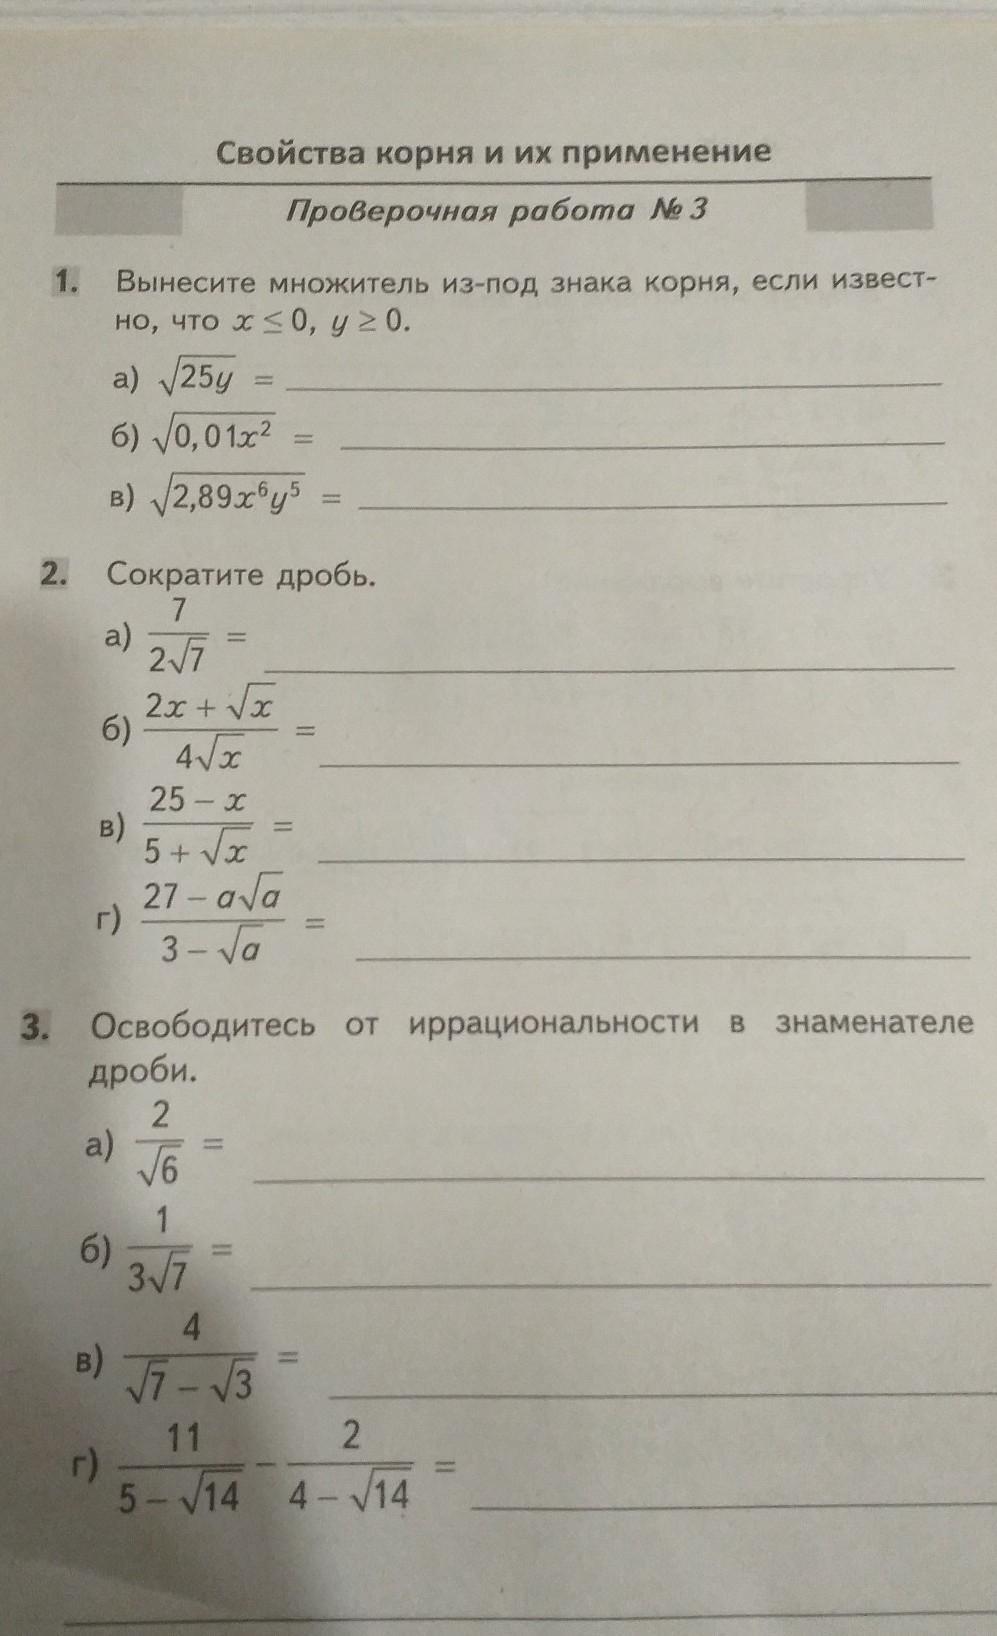 Свойства корня и их применение
Проверочная работа № 3
1. Вынесите множитель из-под знака корня, если извест-
но, что x ≤ 0, y ≥ 0.
а) √25y =
б) √0,01x² =
в) √2,89x⁶y⁵ =
2. Сократите дробь.
а) 7/2√7 =
б) 2x + √x/4√x =
в) 25 – x/5 + √x =
г) 27 – a√a/3 – √a =
3. Освободитесь от иррациональности в знаменателе
дроби.
а) 2/√6 =
б) 1/3√7 =
в) 4/√7 – √3 =
г) 11/5 – √14 – 2/4 – √14 =